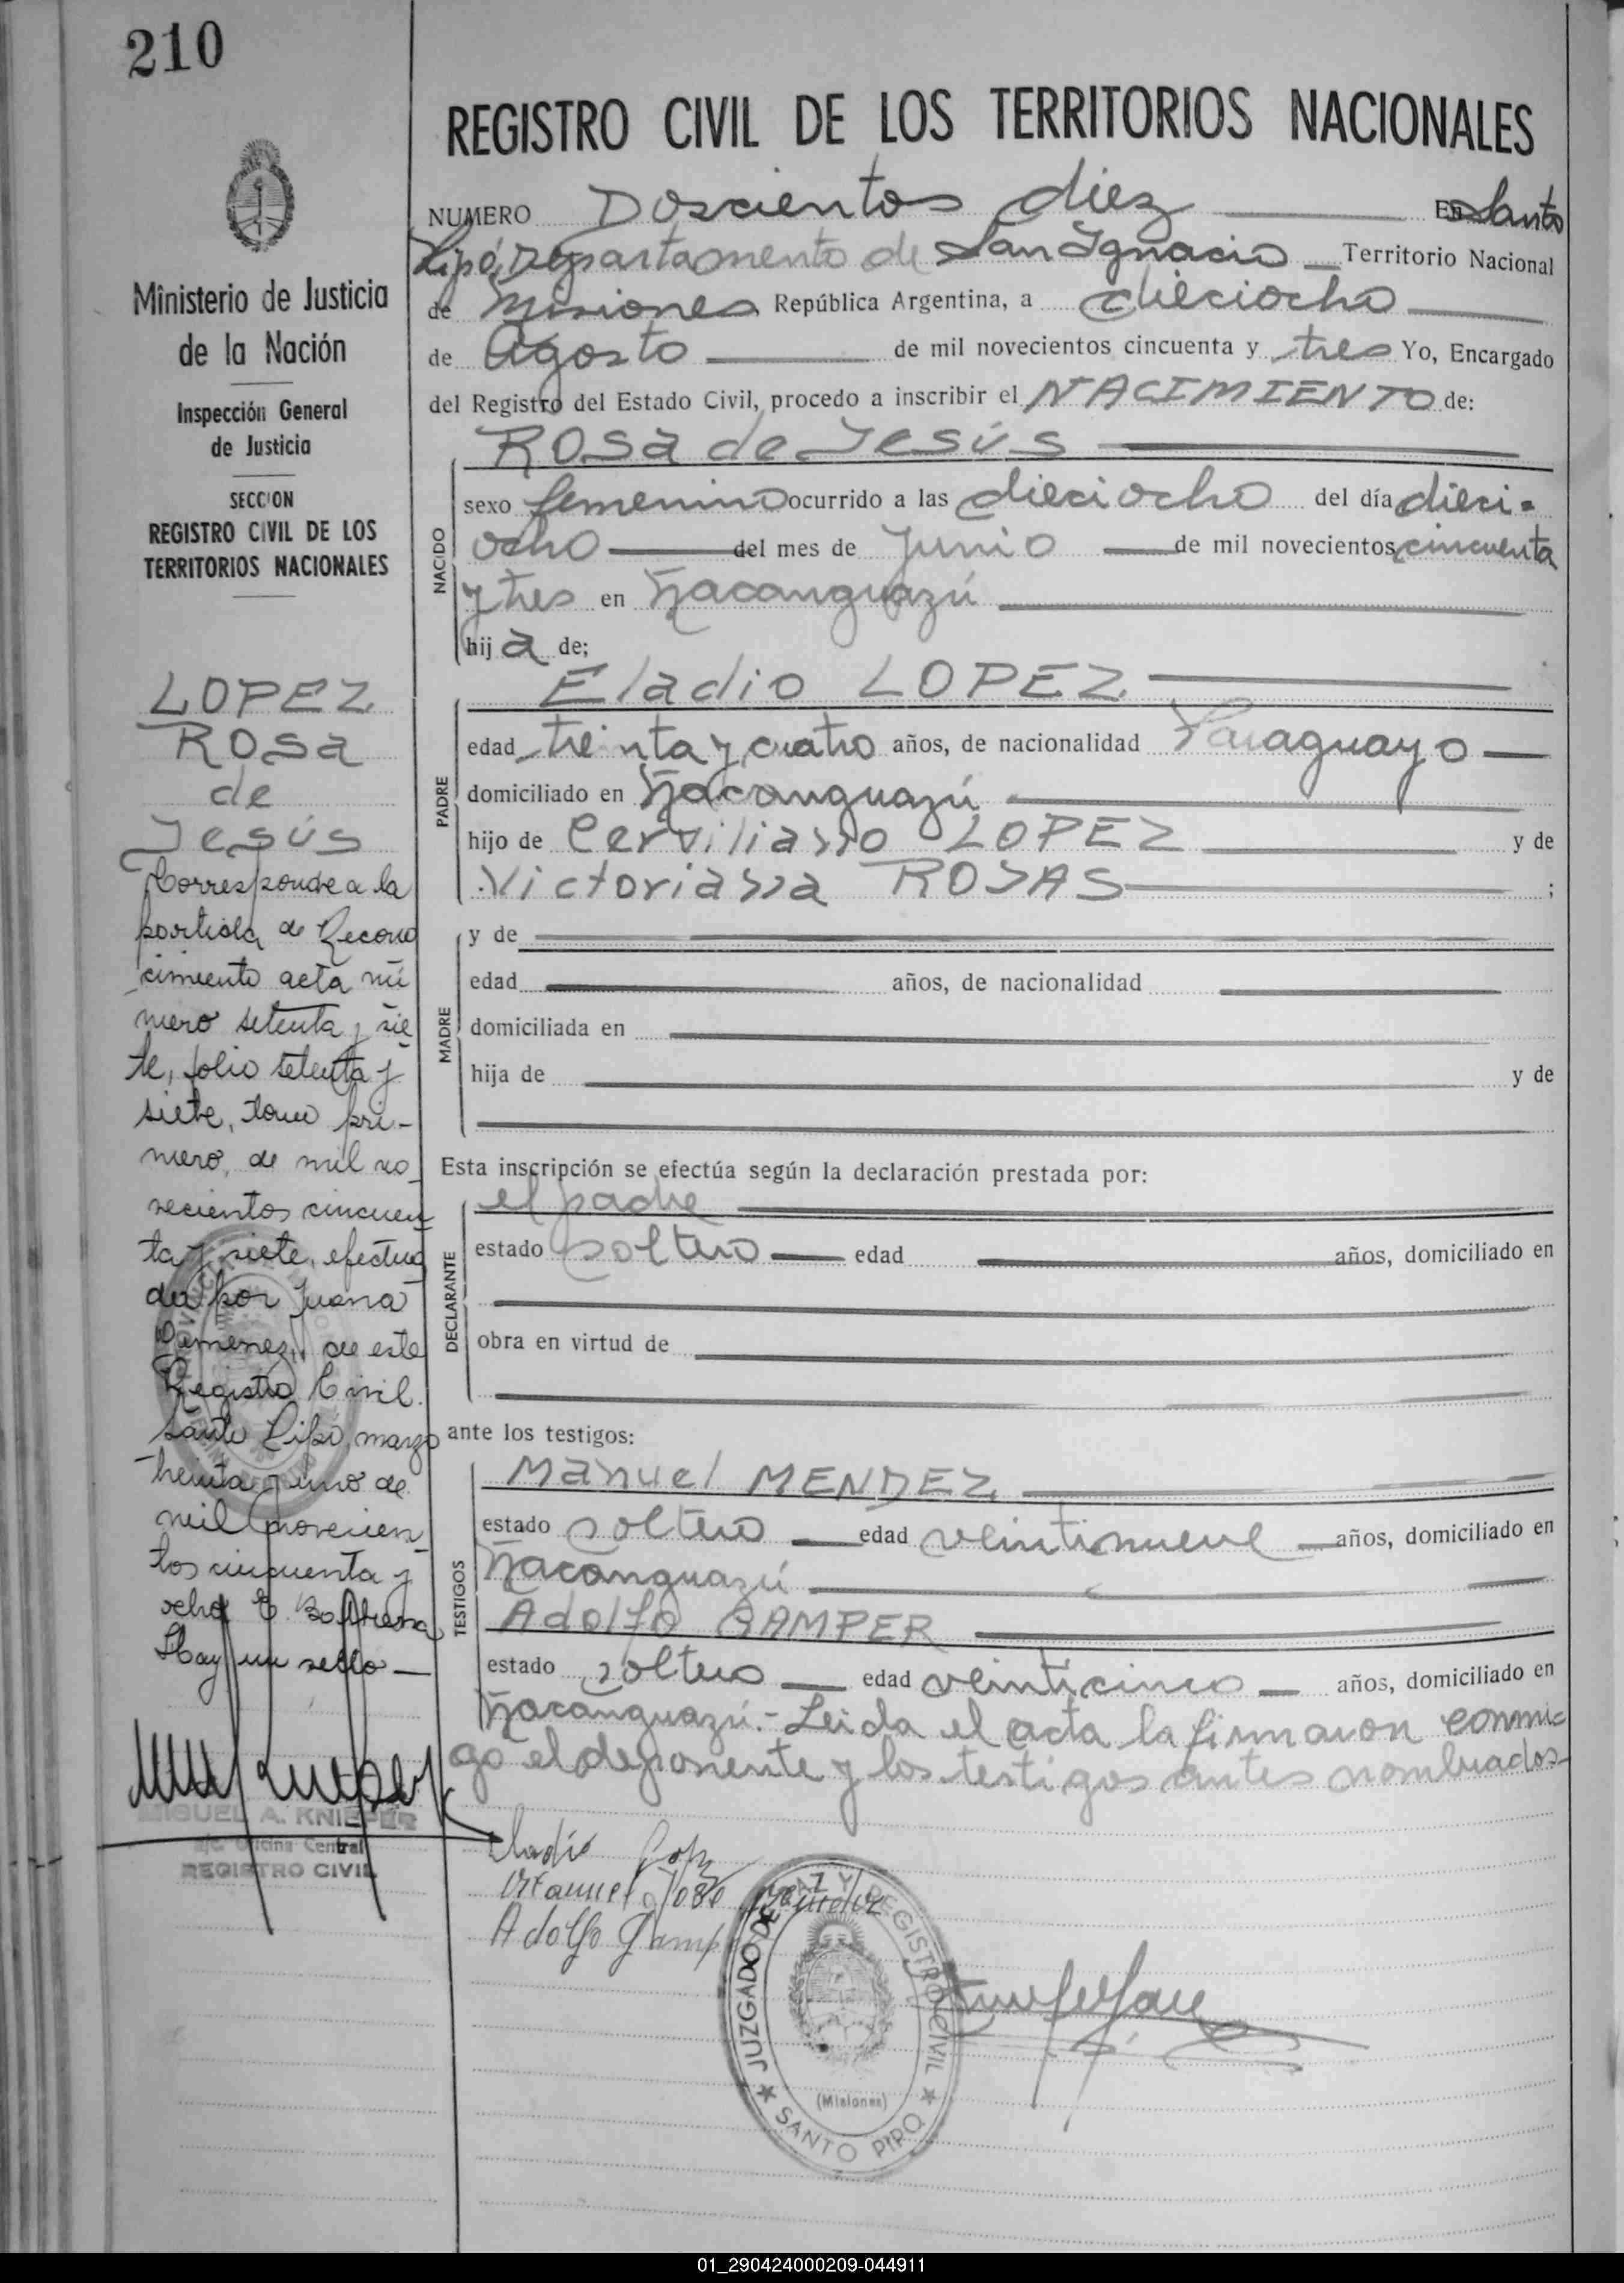 210
Ministerio de Justicia
de la Nación
Inspección General
de Justicia
SECCION
REGISTRO CIVIL DE LOS
TERRITORIOS NACIONALES
LOPEZ
Rosa
de
Jesús
Corresponde a la
partida de Recono
cimiento acta nú
mero setenta y sie
te, folio setenta y
siete, tomo pri-
mero, de mil no
vecientos cincuen
ta y siete, efectua
da por Juana
Gimenez, de este
Registro Civil.
Santo Pipó, marzo
treinta y uno de
mil novecien
tos cincuenta y
ocho
Hay un sello
MIGUEL A. KNIEPER
Oficina Central
REGISTRO CIVIL
REGISTRO CIVIL DE LOS TERRITORIOS NACIONALES
NUMERO Doscientos diez En Santo
Pipó, Departamento de San Ignacio Territorio Nacional
de Misiones República Argentina, a dieciocho
de Agosto de mil novecientos cincuenta y tres Yo, Encargado
del Registro del Estado Civil, procedo a inscribir el NACIMIENTO de:
Rosa de Jesús
NACIDO
sexo femenino ocurrido a las dieciocho del día dieci-
ocho del mes de Junio de mil novecientos cincuenta
y tres en Ñacanguazú
hija de;
PADRE
Eladio LOPEZ
edad treinta y cuatro años, de nacionalidad Paraguayo
domiciliado en Ñacanguazú
hijo de Cerviliano LOPEZ y de
Victoriana ROJAS ;
MADRE
y de
edad años, de nacionalidad
domiciliada en
hija de y de
Esta inscripción se efectúa según la declaración prestada por:
DECLARANTE
el padre
estado soltero edad años, domiciliado en
obra en virtud de
ante los testigos:
TESTIGOS
Manuel MENDEZ
estado soltero edad veintinueve años, domiciliado en
Ñacanguazú
Adolfo GAMPER
estado soltero edad veinticinco años, domiciliado en
Ñacanguazú.- Leida el acta la firmaron conmi-
go el deponente y los testigos antes nombrados-
Eladio Lopz
Manuel José Mendez
Adolfo Gamp
JUZGADO DE PAZ Y REGISTRO CIVIL
(Misiones)
SANTO PIPO
01_290424000209-044911